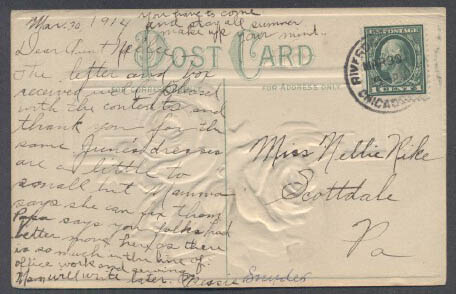 Mar. 30, 1914
you have to come
and stay all summer
make up your mind.
Dear Aunt Nellie
POST CARD
The letter and box
FOR ADDRESS ONLY
received and pleased
with the contents and
thank you for the
same Junes dresses
are a little to
small but Mamma
says she can fix them
Papa says you folks had
better move here as there
is so much in the line of
office work and sewing
Mam will write later. Bessie Snyder
1 CENT 1
CHICAGO
Miss Nellie Rike
Scottdale
Pa